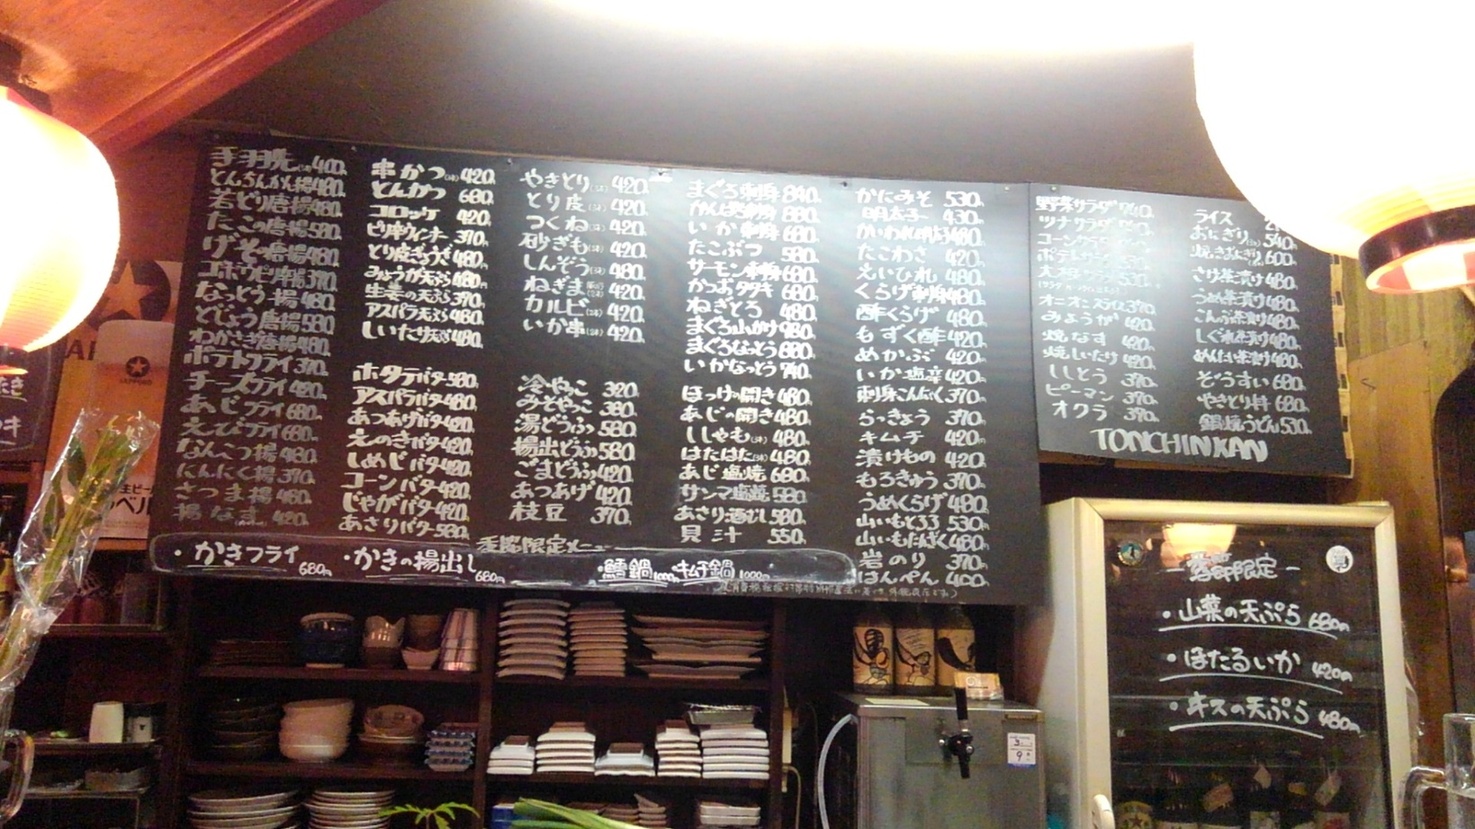 手羽先 400
とんちんかん揚 480
若どり唐揚 480
たこの唐揚 580
げその唐揚 480
ゴボウピリ辛揚 370
なっとう揚 480
どじょう唐揚 580
わかさぎ唐揚 480
ポテトフライ 370
チーズフライ 420
あじフライ 680
えびフライ 680
なんこつ揚 480
にんにく揚 370
さつま揚 480
揚なす 420
串かつ 420
とんかつ 680
コロッケ 420
ピリ辛ウィンナー 370
とり皮ぎょうざ 480
みょうが天ぷら 480
生姜の天ぷら 370
アスパラ天ぷら 480
しいたけ天ぷら 480
ホタテバター 580
アスパラバター 480
あつあげバター 420
えのきバター 420
しめじバター 420
コーンバター 420
じゃがバター 420
あさりバター 580
やきとり 420
とり皮 420
つくね 420
砂ぎも 420
しんぞう 480
ねぎま 420
カルビ 420
いか串 420
冷やっこ 320
みそやっこ 380
湯どうふ 580
揚出どうふ 580
ごまどうふ 420
あつあげ 420
枝豆 370
まぐろ刺身 840
かんぱち刺身 880
いか刺身 680
たこぶつ 580
サーモン刺身 680
かつおタタキ 680
ねぎとろ 480
まぐろ山かけ 980
まぐろなっとう 880
いかなっとう 740
ほっけの開き 480
あじの開き 480
ししゃも 480
はたはた 480
あじ塩焼 680
サンマ塩焼 580
あさり酒むし 580
貝汁 550
かにみそ 530
明太子 430
かいわれ明太子 480
たこわさ 420
えいひれ 480
くらげ刺身 480
酢くらげ 480
もずく酢 420
めかぶ 420
いか塩辛 420
刺身こんにゃく 370
らっきょう 370
キムチ 420
漬けもの 420
もろきゅう 370
うめくらげ 480
山いもとろろ 530
山いもたんざく 480
岩のり 370
はんぺん 400
季節限定メニュー
・かきフライ 680円 ・かきの揚出し 680円 ・鱈鍋 1000円 ・キムチ鍋 1000円
野菜サラダ
ツナサラダ
コーンサラダ
ポテトサラダ
大根サラダ 530
オニオンスライス 370
みょうが 420
焼なす 420
焼しいたけ 420
ししとう 370
ピーマン 370
オクラ 370
ライス
おにぎり 540
焼おにぎり 600
さけ茶漬け 480
うめ茶漬け 480
こんぶ茶漬け 480
しぐれ茶漬け 480
めんたい茶漬け 480
ぞうすい 680
やきとり丼 680
鍋焼うどん 530
TONCHINKAN
-季節限定-
・山菜の天ぷら 680円
・ほたるいか 420円
・キスの天ぷら 480円
SAPPORO